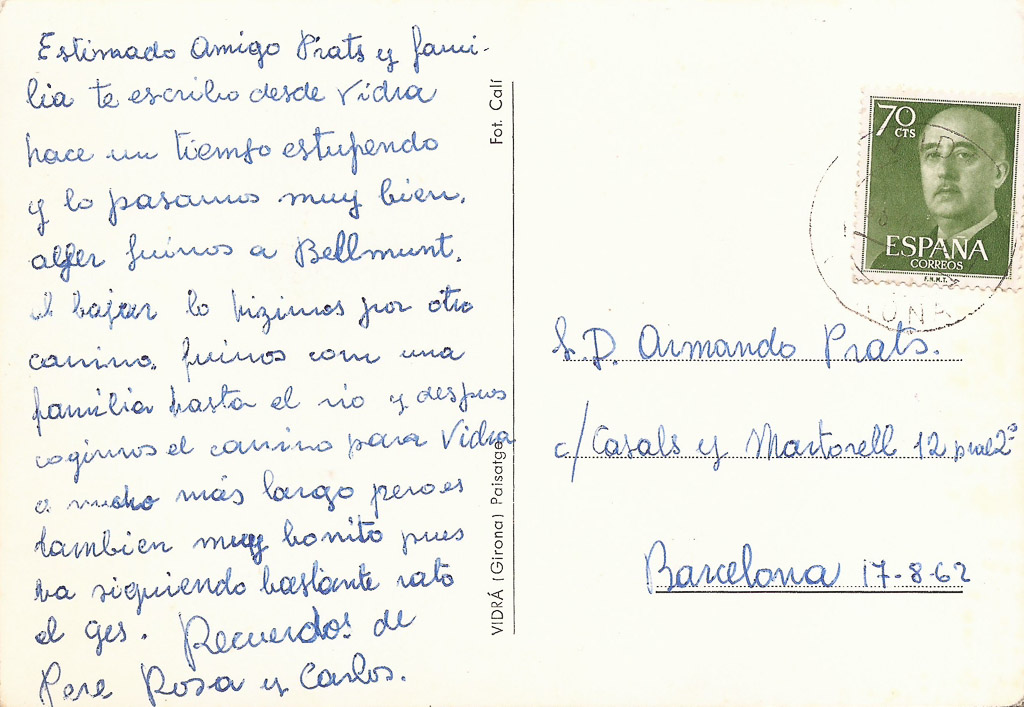 Estimado Amigo Prats y fami-
lia te escribo desde Vidra
hace un tiempo estupendo
y lo pasamos muy bien.
ayer fuimos a Bellmunt.
al bajar lo hizimos por otro
camino. fuimos con una
familia hasta el rio y despues
cogimos el camino para Vidra
a mucho más largo pero es
tambien muy bonito pues
va siguiendo bastante rato
el Ges. Recuerdos de
Pere Rosa y Carlos.
VIDRÁ (Girona) Paisatge
Fot. Calí
70
CTS
ESPAÑA
CORREOS
F.N.M.T.
S. D. Armando Prats.
c/ Casals y Martorell 12 pral 2ª
Barcelona 17-8-62